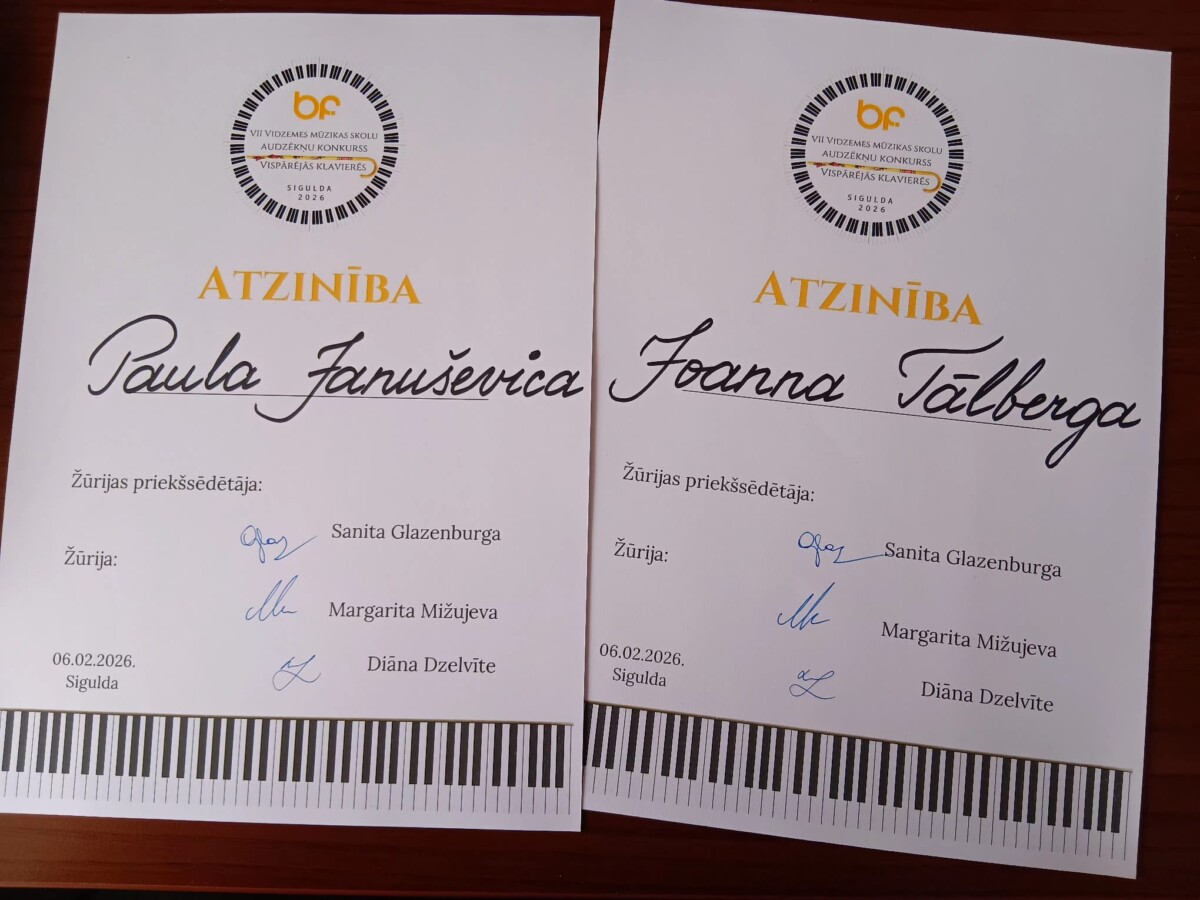 bf
VII Vidzemes mūzikas skolu
audzēkņu konkurss
Vispārējās klavierēs
SIGULDA
2026
Atzinība
Paula Januševica
Žūrijas priekšsēdētāja:
Sanita Glazenburga
Žūrija:
Margarita Mižujeva
Diāna Dzelvīte
06.02.2026.
Sigulda
bf
VII Vidzemes mūzikas skolu
audzēkņu konkurss
Vispārējās klavierēs
SIGULDA
2026
Atzinība
Joanna Tālberga
Žūrijas priekšsēdētāja:
Sanita Glazenburga
Žūrija:
Margarita Mižujeva
Diāna Dzelvīte
06.02.2026.
Sigulda